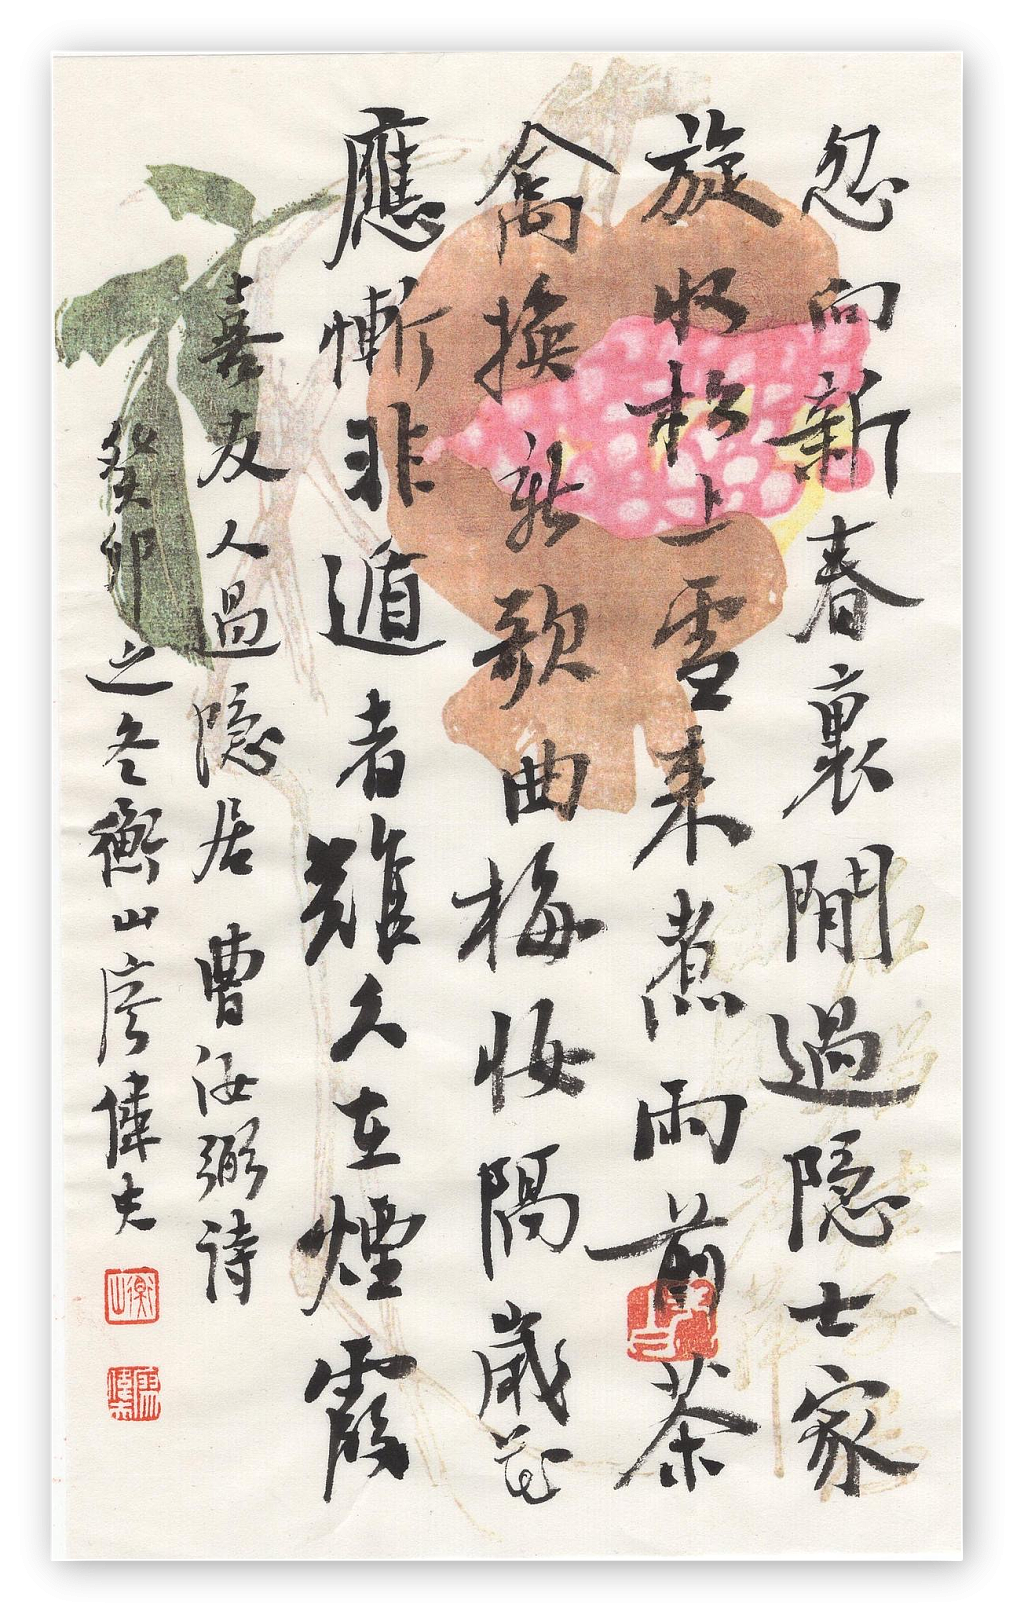 忽向新春裏閒過隐士家
旋收松上雪来煮雨前茶
禽換新歌曲梅妆隔歲花
應慚非遁者難久在煙霞
喜友人過隱居 曹汝弼诗
癸卯之冬衡山廖偉夫
衡山